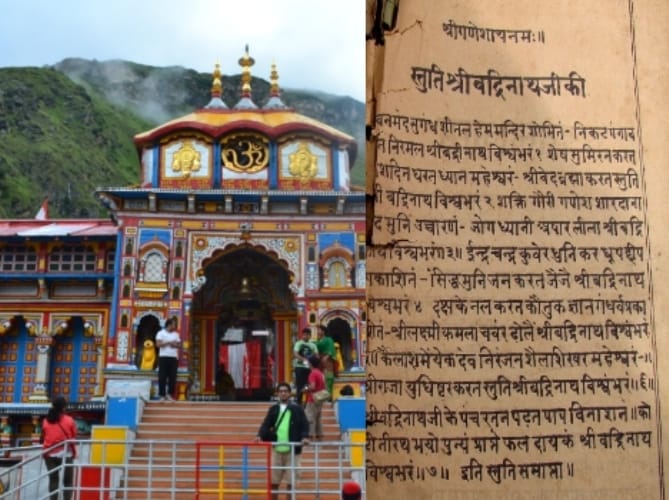 ॐ
श्रीगणेशायनमः॥
स्तुतिश्रीबद्रिनाथजीकी
शीतल हेममन्दिर शोभित- निकट गंगा
निरमल श्रीबद्रीनाथ विश्वभरं १ शेष सुमिरन करत
धरत ध्यान महेश्वरं- श्रीवेदब्रह्मा करत स्तुति
बद्रिनाथ विश्वभरं २ शक्ति गौरी गणेश शारदा ना
द मुनि उच्चारणं- जोग ध्यानी अपार लीला श्रीबद्रि
विश्वभरं॥३॥ ईन्द्र चन्द्र कुवेर धुनि कर धूप दीप
काशितं- सिद्ध मुनिजन करत जैजै श्रीबद्रिनाथ
विश्वभरं ४ करत कौतुक ज्ञान गंधर्व प्रका
श्रीलक्ष्मी कमला चवंर ढोलैं श्रीबद्रिनाथ विश्वभरं
कैलाश मे येक देव निरंजन शैलाशिखर महेश्वरं-
श्रीराजा युधिष्टर करत स्तुति श्रीबद्रिनाथ विश्वंभरं॥६॥
श्रीबद्रिनाथजी के पंच रतन पढ़त पाप विनाशनं॥ को
तीरथ भयो पुन्यं प्राप्ते फल दायकं श्री बद्रिनाथ
विश्वभरं॥७॥ इति स्तुति समाप्ता॥